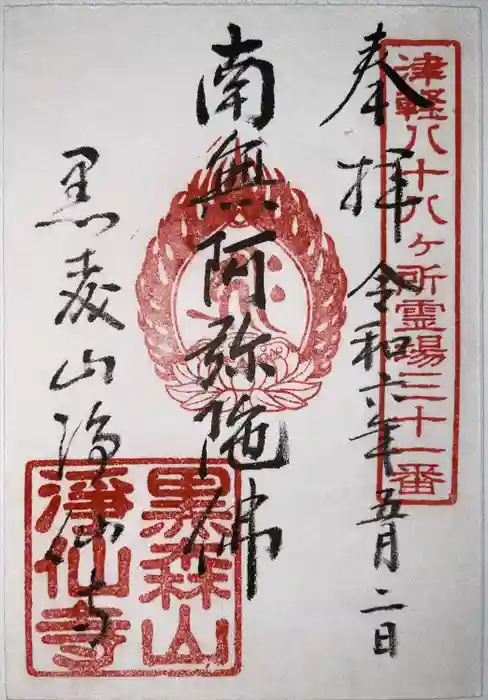 津軽八十八ヶ所霊場三十一番
奉拝
令和六年五月二日
南無阿弥陀佛
黒森山浄仙寺
黒森山
浄仙寺